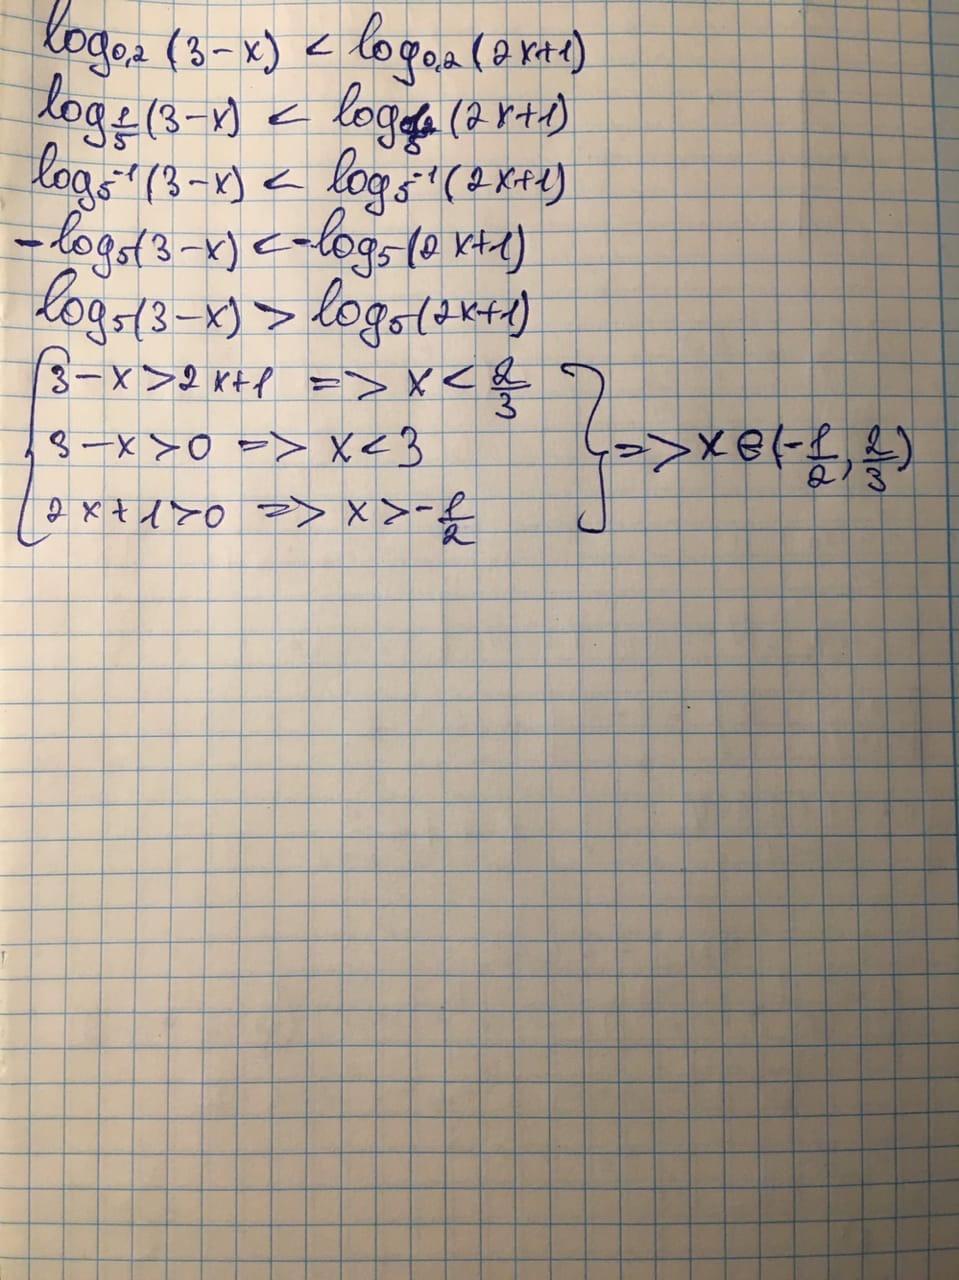 log₀,₂(3-x) < log₀,₂(2x+1)
log_{1/5}(3-x) < log_{1/5}(2x+1)
log₅⁻¹(3-x) < log₅⁻¹(2x+1)
-log₅(3-x) < -log₅(2x+1)
log₅(3-x) > log₅(2x+1)
{ 3-x>2x+1 => x < 2/3
3-x>0 => x<3 } => x∈(-1/2, 2/3)
2x+1>0 => x>-1/2